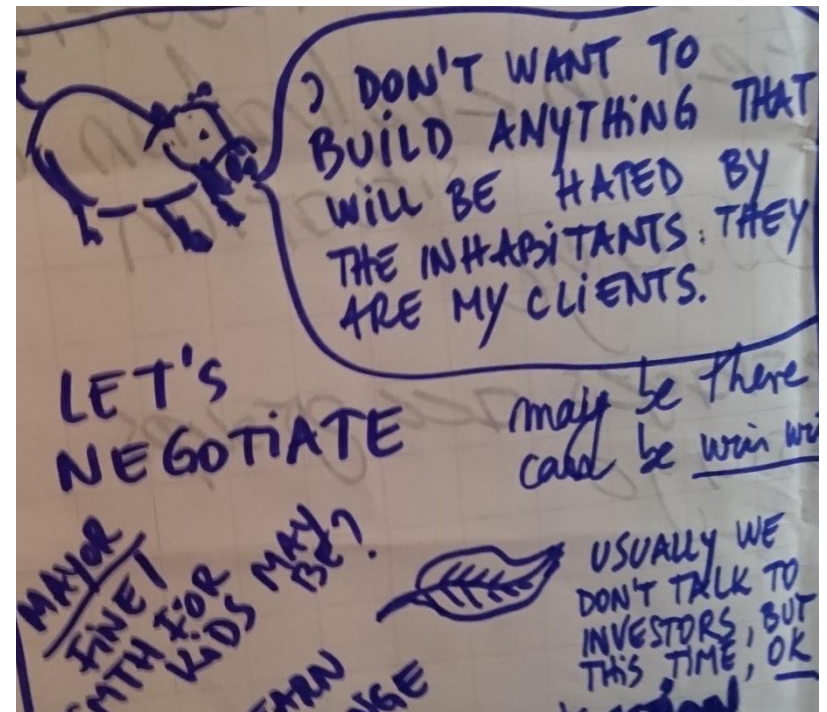 I DON'T WANT TO
BUILD ANYTHING THAT
WILL BE HATED BY
THE INHABITANTS. THEY
ARE MY CLIENTS.
LET'S
NEGOTIATE
may be there
can be win
MAYOR
FINE!
SMTH FOR
KIDS MAY
BE?
USUALLY WE
DON'T TALK TO
INVESTORS, BUT
THIS TIME, OK